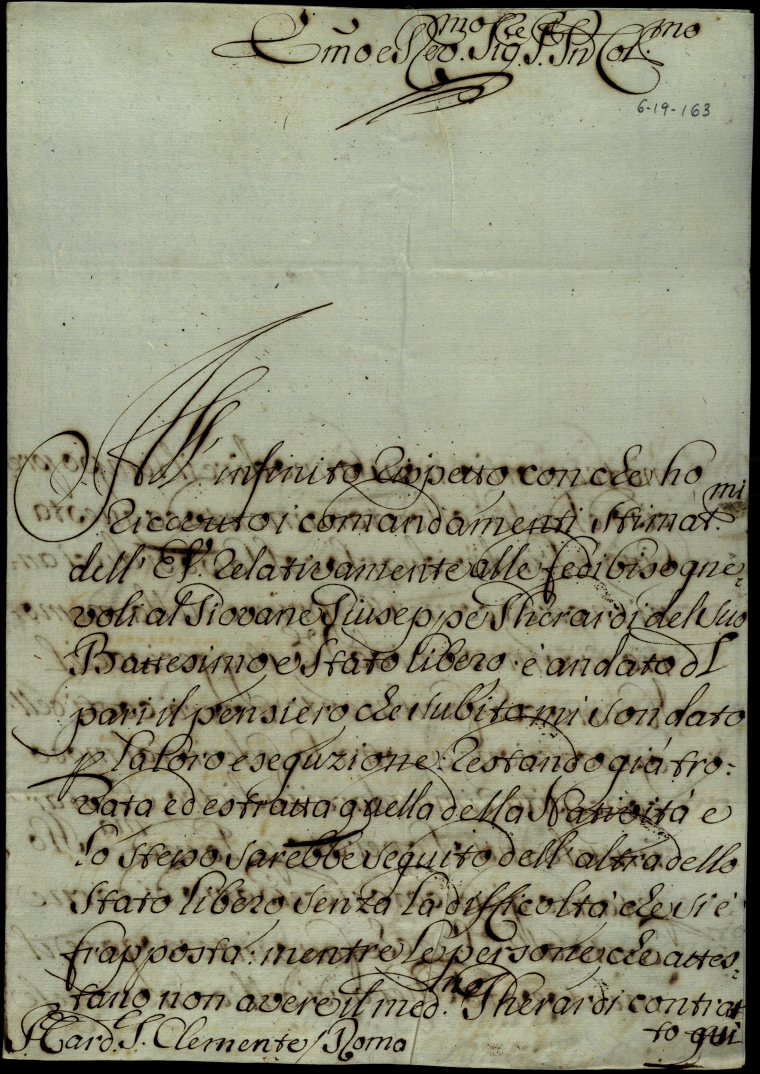 Emo e Rev.mo Sig.re P.ron Col.mo
6-19-163
All' infinito rispetto con che ho
Ricevuto i comandamenti stimat.mi
dell' E.V. Relativamente alle fedi bisogne-
voli al Giovane Giuseppe Gherardi del suo
Battesimo e Stato libero é andato del
pari il pensiero che subito mi son dato
p la loro esequzione: Restando giá tro:
vata ed estratta quella della Nativitá e
lo stesso sarebbe seguito dell' altra dello
Stato libero senza la difficoltá che si é
frapposta: mentre le persone che attes-
tano non avere il med.mo Gherardi contrat
to qui
Card. S. Clemente / Roma